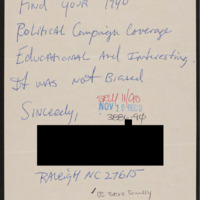 Find your 1990
Political Campaign Coverage
Educational And Interesting.
It was not Biased
Sincerely,
NOV
3886-90
Raleigh NC 27615
cc Steve Scully